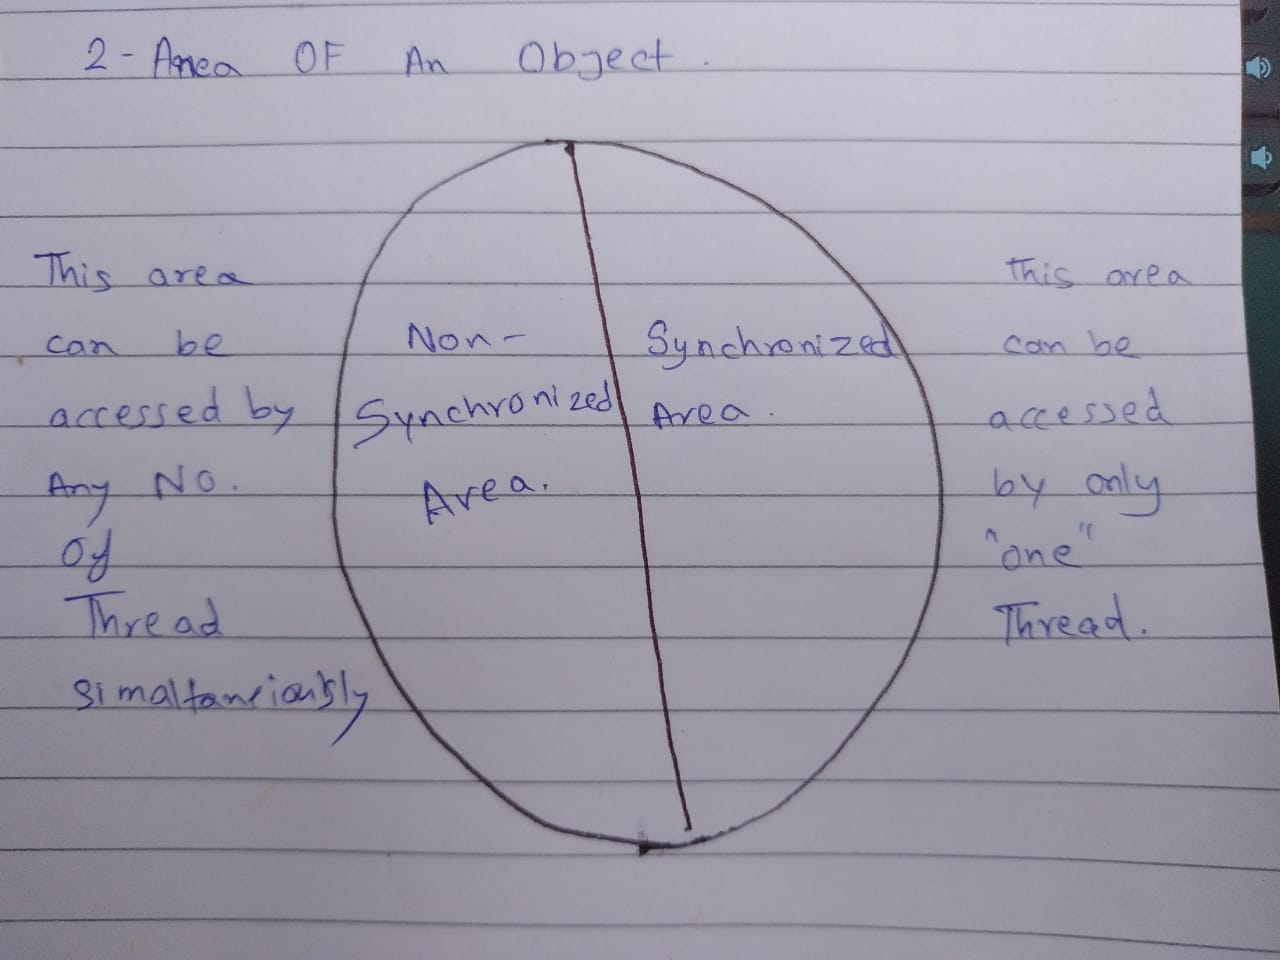 2 - Area OF An Object.
This area
can be
accessed by
Any No.
Of
Thread
simaltaneiously
Non-
Synchronized
Area.
Synchronized
Area.
This area
can be
accessed
by only
"one"
Thread.